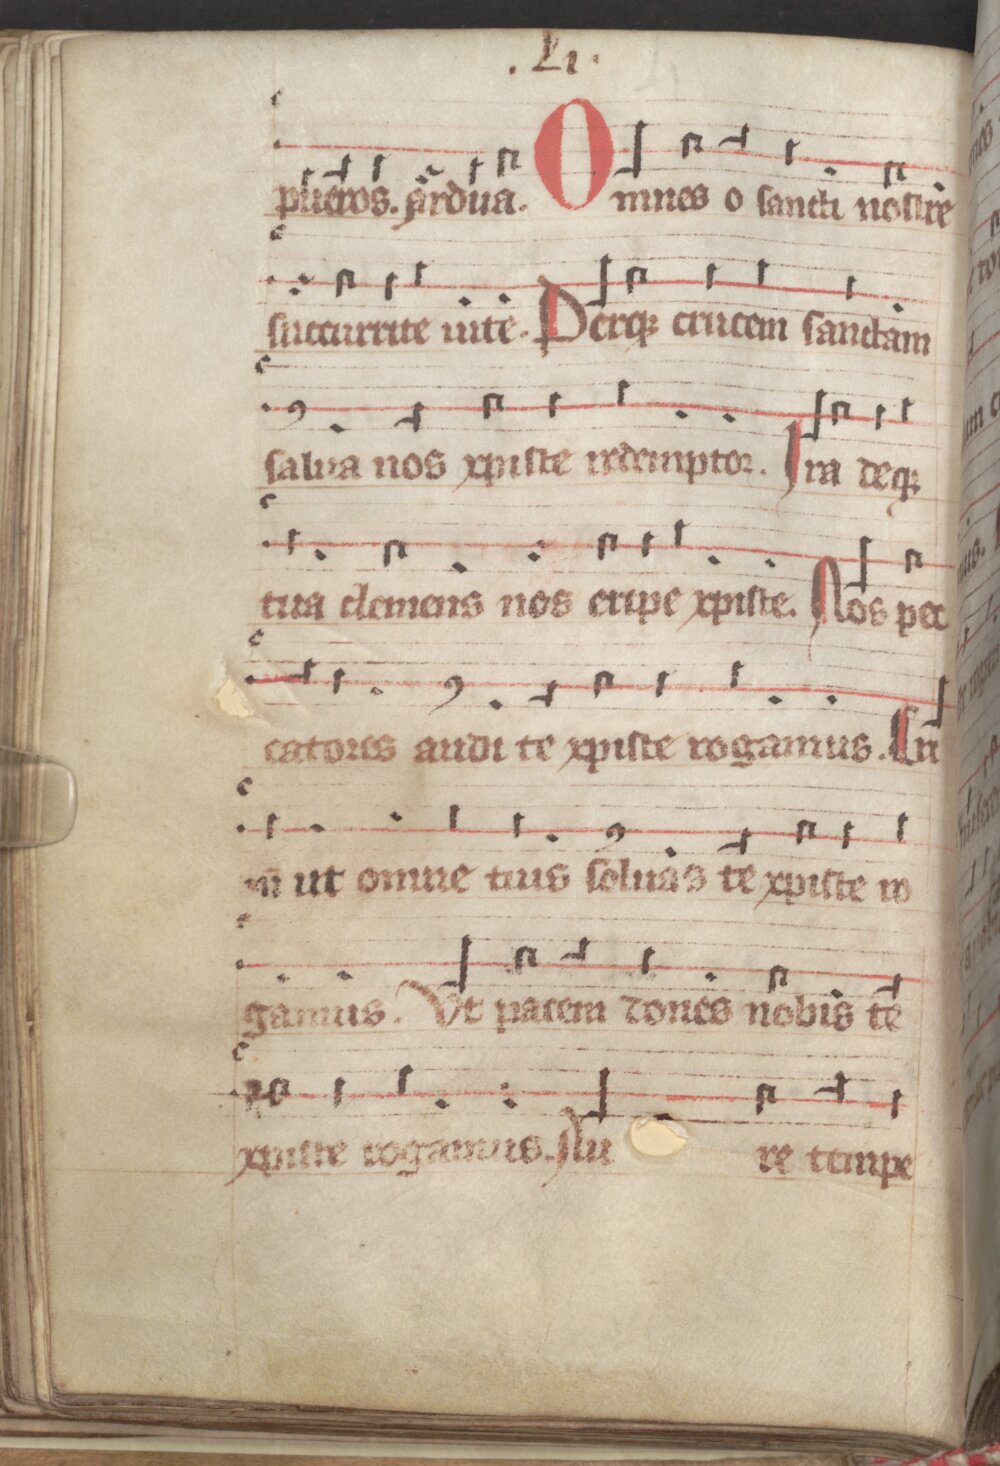 .Li.
pueros. ardua. Omnes o sancti nostre
succurrite uite. Perqꝫ crucem sanctam
salua nos xpiste redemptor. Ira deqꝫ
tua clemens nos eripe xpiste. Nos pec
catores audi te xpiste rogamus. Cu
ut omne tuis soluas te xpiste ro
gamus. Ut pacem dones nobis te
xpiste rogamus. Au re tempe